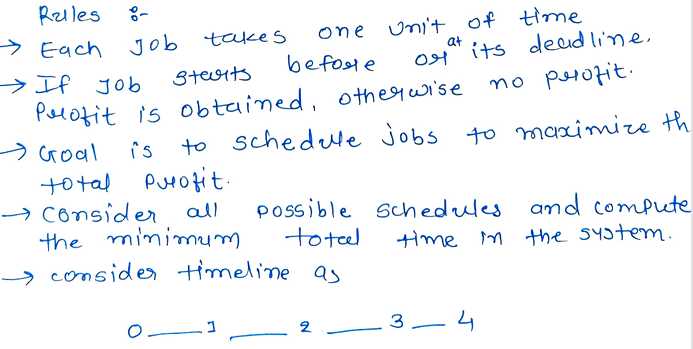 Rules :-
→ Each Job takes one unit of time
→ If Job starts before or at its deadline.
Profit is obtained, otherwise no profit.
→ Goal is to schedule jobs to maximize th
total profit.
→ consider all possible schedules and compute
the minimum total time in the system.
→ consider timeline as
0 — 1 — 2 — 3 — 4